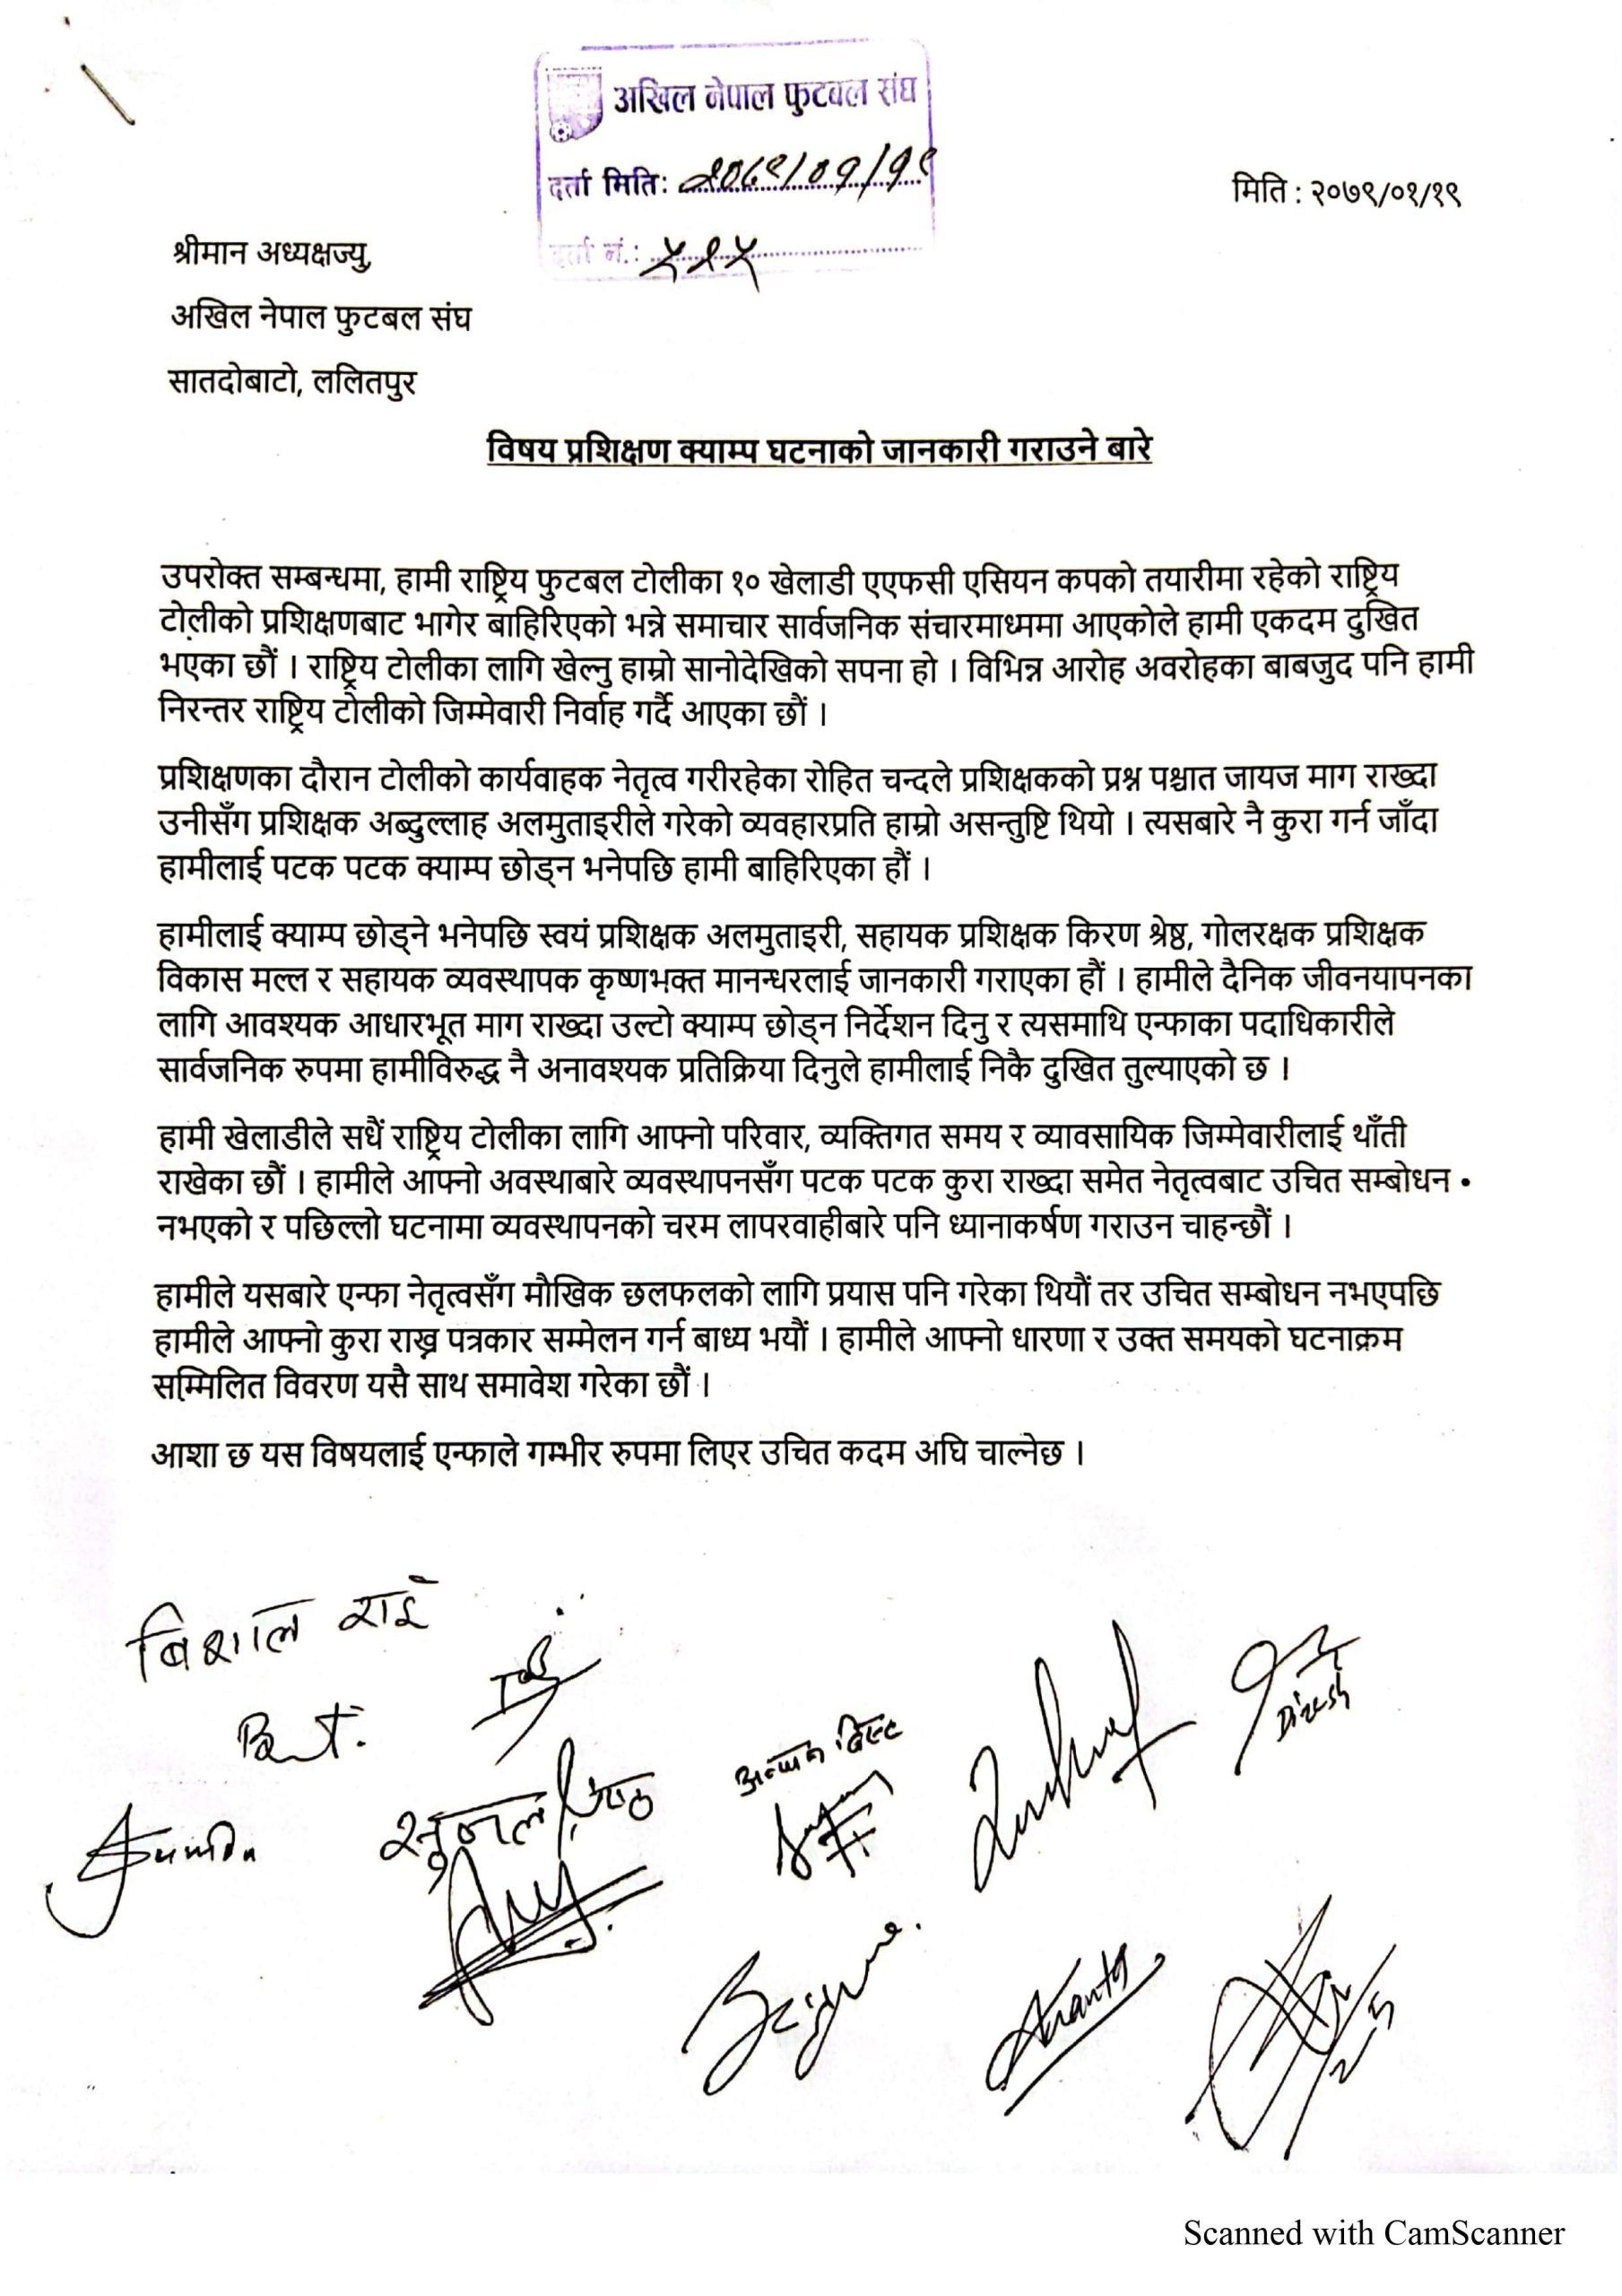 अखिल नेपाल फुटबल संघ
दर्ता मिति: २०७९/०१/१९
दर्ता नं.: ५२५
मिति : २०७९/०१/१९
श्रीमान अध्यक्षज्यु,
अखिल नेपाल फुटबल संघ
सातदोबाटो, ललितपुर
विषय प्रशिक्षण क्याम्प घटनाको जानकारी गराउने बारे
उपरोक्त सम्बन्धमा, हामी राष्ट्रिय फुटबल टोलीका १० खेलाडी एएफसी एसियन कपको तयारीमा रहेको राष्ट्रिय
टोलीको प्रशिक्षणबाट भागेर बाहिरिएको भन्ने समाचार सार्वजनिक संचारमाध्यममा आएकोले हामी एकदम दुखित
भएका छौं । राष्ट्रिय टोलीका लागि खेल्नु हाम्रो सानोदेखिको सपना हो । विभिन्न आरोह अवरोहका बाबजुद पनि हामी
निरन्तर राष्ट्रिय टोलीको जिम्मेवारी निर्वाह गर्दै आएका छौं ।
प्रशिक्षणका दौरान टोलीको कार्यवाहक नेतृत्व गरीरहेका रोहित चन्दले प्रशिक्षकको प्रश्न पश्चात जायज माग राख्दा
उनीसँग प्रशिक्षक अब्दुल्लाह अलमुताइरीले गरेको व्यवहारप्रति हाम्रो असन्तुष्टि थियो । त्यसबारे नै कुरा गर्न जाँदा
हामीलाई पटक पटक क्याम्प छोड्न भनेपछि हामी बाहिरिएका हौं ।
हामीलाई क्याम्प छोड्ने भनेपछि स्वयं प्रशिक्षक अलमुताइरी, सहायक प्रशिक्षक किरण श्रेष्ठ, गोलरक्षक प्रशिक्षक
विकास मल्ल र सहायक व्यवस्थापक कृष्णभक्त मानन्धरलाई जानकारी गराएका हौं । हामीले दैनिक जीवनयापनका
लागि आवश्यक आधारभूत माग राख्दा उल्टो क्याम्प छोड्न निर्देशन दिनु र त्यसमाथि एन्फाका पदाधिकारीले
सार्वजनिक रुपमा हामीविरुद्ध नै अनावश्यक प्रतिक्रिया दिनुले हामीलाई निकै दुखित तुल्याएको छ ।
हामी खेलाडीले सधैं राष्ट्रिय टोलीका लागि आफ्नो परिवार, व्यक्तिगत समय र व्यावसायिक जिम्मेवारीलाई थाँती
राखेका छौं । हामीले आफ्नो अवस्थाबारे व्यवस्थापनसँग पटक पटक कुरा राख्दा समेत नेतृत्वबाट उचित सम्बोधन
नभएको र पछिल्लो घटनामा व्यवस्थापनको चरम लापरवाहीबारे पनि ध्यानाकर्षण गराउन चाहन्छौं ।
हामीले यसबारे एन्फा नेतृत्वसँग मौखिक छलफलको लागि प्रयास पनि गरेका थियौं तर उचित सम्बोधन नभएपछि
हामीले आफ्नो कुरा राख्न पत्रकार सम्मेलन गर्न बाध्य भयौं । हामीले आफ्नो धारणा र उक्त समयको घटनाक्रम
सम्मिलित विवरण यसै साथ समावेश गरेका छौं ।
आशा छ यस विषयलाई एन्फाले गम्भीर रुपमा लिएर उचित कदम अघि चाल्नेछ ।
बिशाल राई
Dinesh
अन्जन बिष्ट
Ananta
Scanned with CamScanner